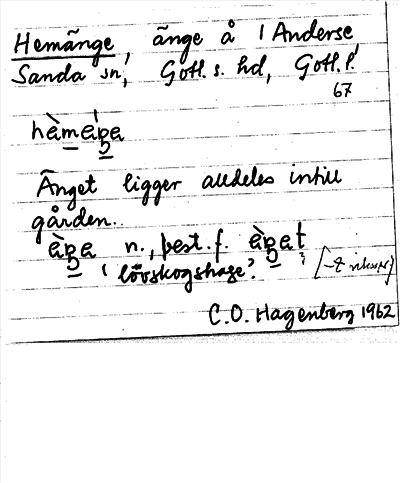 Hemänge, änge å 1 Anderse
Sanda sn, Gotl. s. hd, Gotl. l.
67
Änget ligger alldeles intill
gården.
n., best. f.
'lövskogshage'.
C.O. Hagenberg 1962